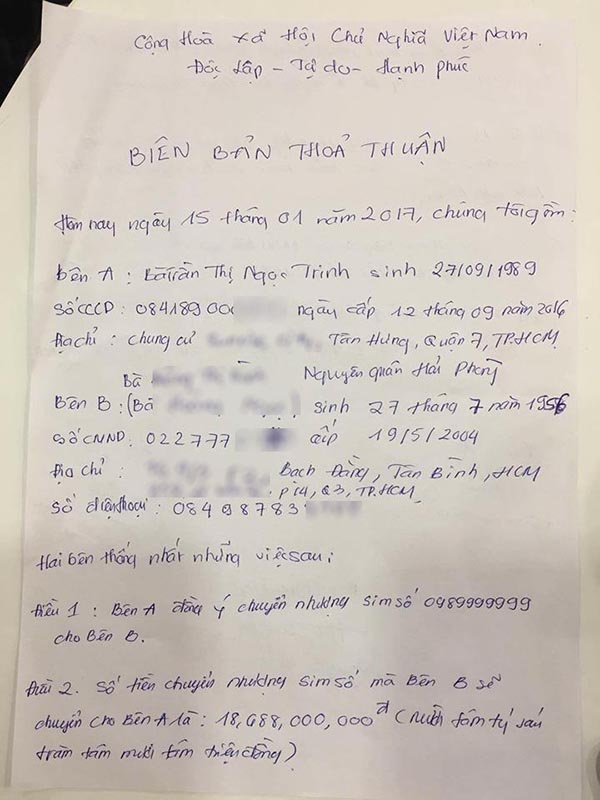 Cộng Hoà Xã Hội Chủ Nghĩa Việt Nam.
Độc Lập - Tự do - Hạnh phúc
BIÊN BẢN THOẢ THUẬN
Hôm nay ngày 15 tháng 01 năm 2017, chúng tôi gồm:
Bên A : Bà Trần Thị Ngọc Trinh sinh 27/09/1989
Số CCCD : 084189 00 ngày cấp 12 tháng 09 năm 2016
Địa chỉ : chung cư Tân Hưng, Quận 7, TP.HCM
Bà Nguyên quán Hải Phòng
Bên B : (Bà ) sinh 27 tháng 7 năm 1956
Số CMND : 022777 cấp 19/5/2004
Địa chỉ : Bạch Đằng, Tân Bình, HCM
P14, Q3, TP.HCM
Số điện thoại : 08498783
Hai bên thống nhất những việc sau:
Điều 1 : Bên A đồng ý chuyển nhượng sim số 0989999999
cho Bên B.
Điều 2. Số tiền chuyển nhượng sim số mà Bên B sẽ
chuyển cho Bên A là : 18,688,000,000đ (Mười tám tỷ sáu
trăm tám mươi tám triệu đồng)